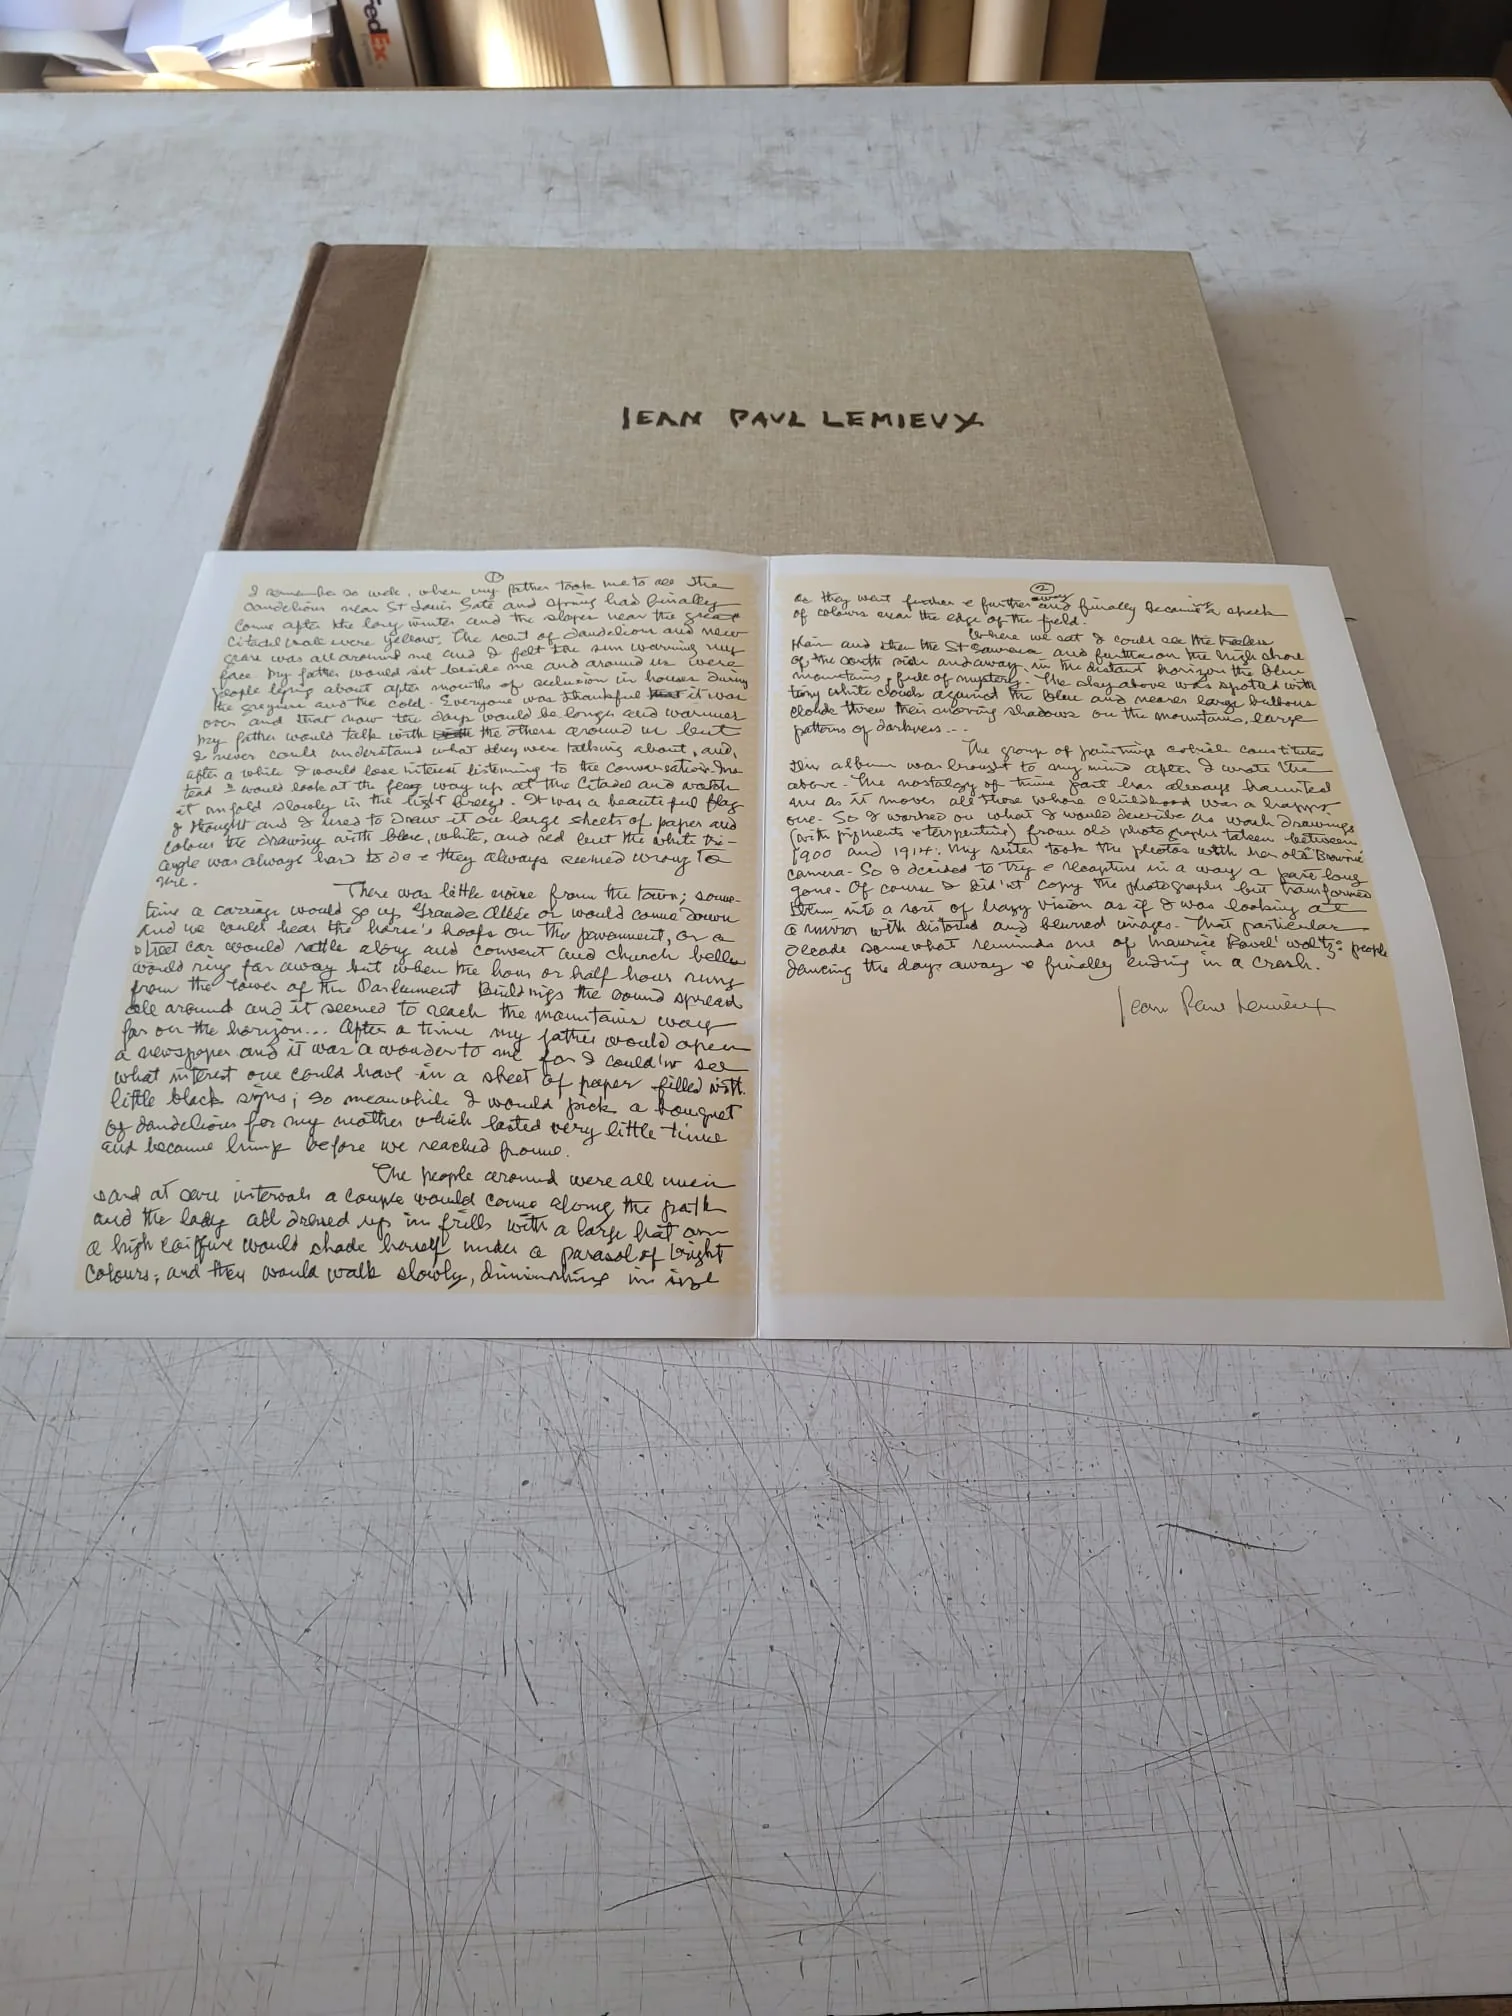 FedEx
JEAN PAUL LEMIEUX
1
I remember so well, when my father took me to see the
dandelions near St Louis Gate and spring had finally
come after the long winter and the slopes near the great
Citadel walls were yellow. The scent of dandelions and new
grass was all around me and I felt the sun warming my
face. My father would sit beside me and around us were
people lying about after months of seclusion in houses during
the and the cold. Everyone was thankful that it was
over and that now the days would be longer and warmer
My father would talk with the others around us but
I never could understand what they were talking about, and,
after a while I would lose interest listening to the conversation. Ins
tead I would look at the flag way up at the Citadel and watch
it unfold slowly in the light breeze. It was a beautiful flag
I thought and I used to draw it on large sheets of paper and
colour the drawing with blue, white, and red but the white tri-
angle was always hard to do & they always seemed wrong to
me.
There was little noise from the town; some-
time a carriage would go up Grande Allée or would come down
and we could hear the horse's hoofs on the pavement, or a
street car would rattle along and convent and church bells
would ring far away but when the hour or half hour rung
from the tower of the Parliament Buildings the sound spread
all around and it seemed to reach the mountains way
far on the horizon... After a time my father would open
a newspaper and it was a wonder to me for I could'nt see
what interest one could have in a sheet of paper filled with
little black signs; so meanwhile I would pick a bouquet
of dandelions for my mother which lasted very little time
and became limp before we reached home.
The people around were all men
and at rare intervals a couple would come along the path
and the lady all dressed up in frills with a large hat on
a high coiffure would shade herself under a parasol of bright
colours; and they would walk slowly, diminishing in size
2
as they went further & further away and finally became a speck
of colours near the edge of the field.
Where we sat I could see the
Plain and then the St Lawrence and further on the high shore
of the south side and away in the distant horizon the blue
mountains, full of mystery. The sky above was spotted with
tiny white clouds against the blue and nearer large
clouds threw their moving shadows on the mountains, large
patterns of darkness...
The group of paintings which constitutes
this album was brought to my mind after I wrote the
above. The nostalgy of time past has always haunted
me as it moves all those whose childhood was a happy
one. So I worked on what I would describe as wash drawings
(with pigments & terpentine) from old photographs taken between
1900 and 1914. My sister took the photos with her old "Brownie"
camera. So I decided to try & recapture in a way a past long
gone. Of course I did'nt copy the photographs but transformed
them into a sort of hazy vision as if I was looking at
a mirror with distorted and blurred images. That particular
decade somewhat reminds me of Maurice Ravel' waltz: people
dancing the days away & finally ending in a crash.
Jean Paul Lemieux